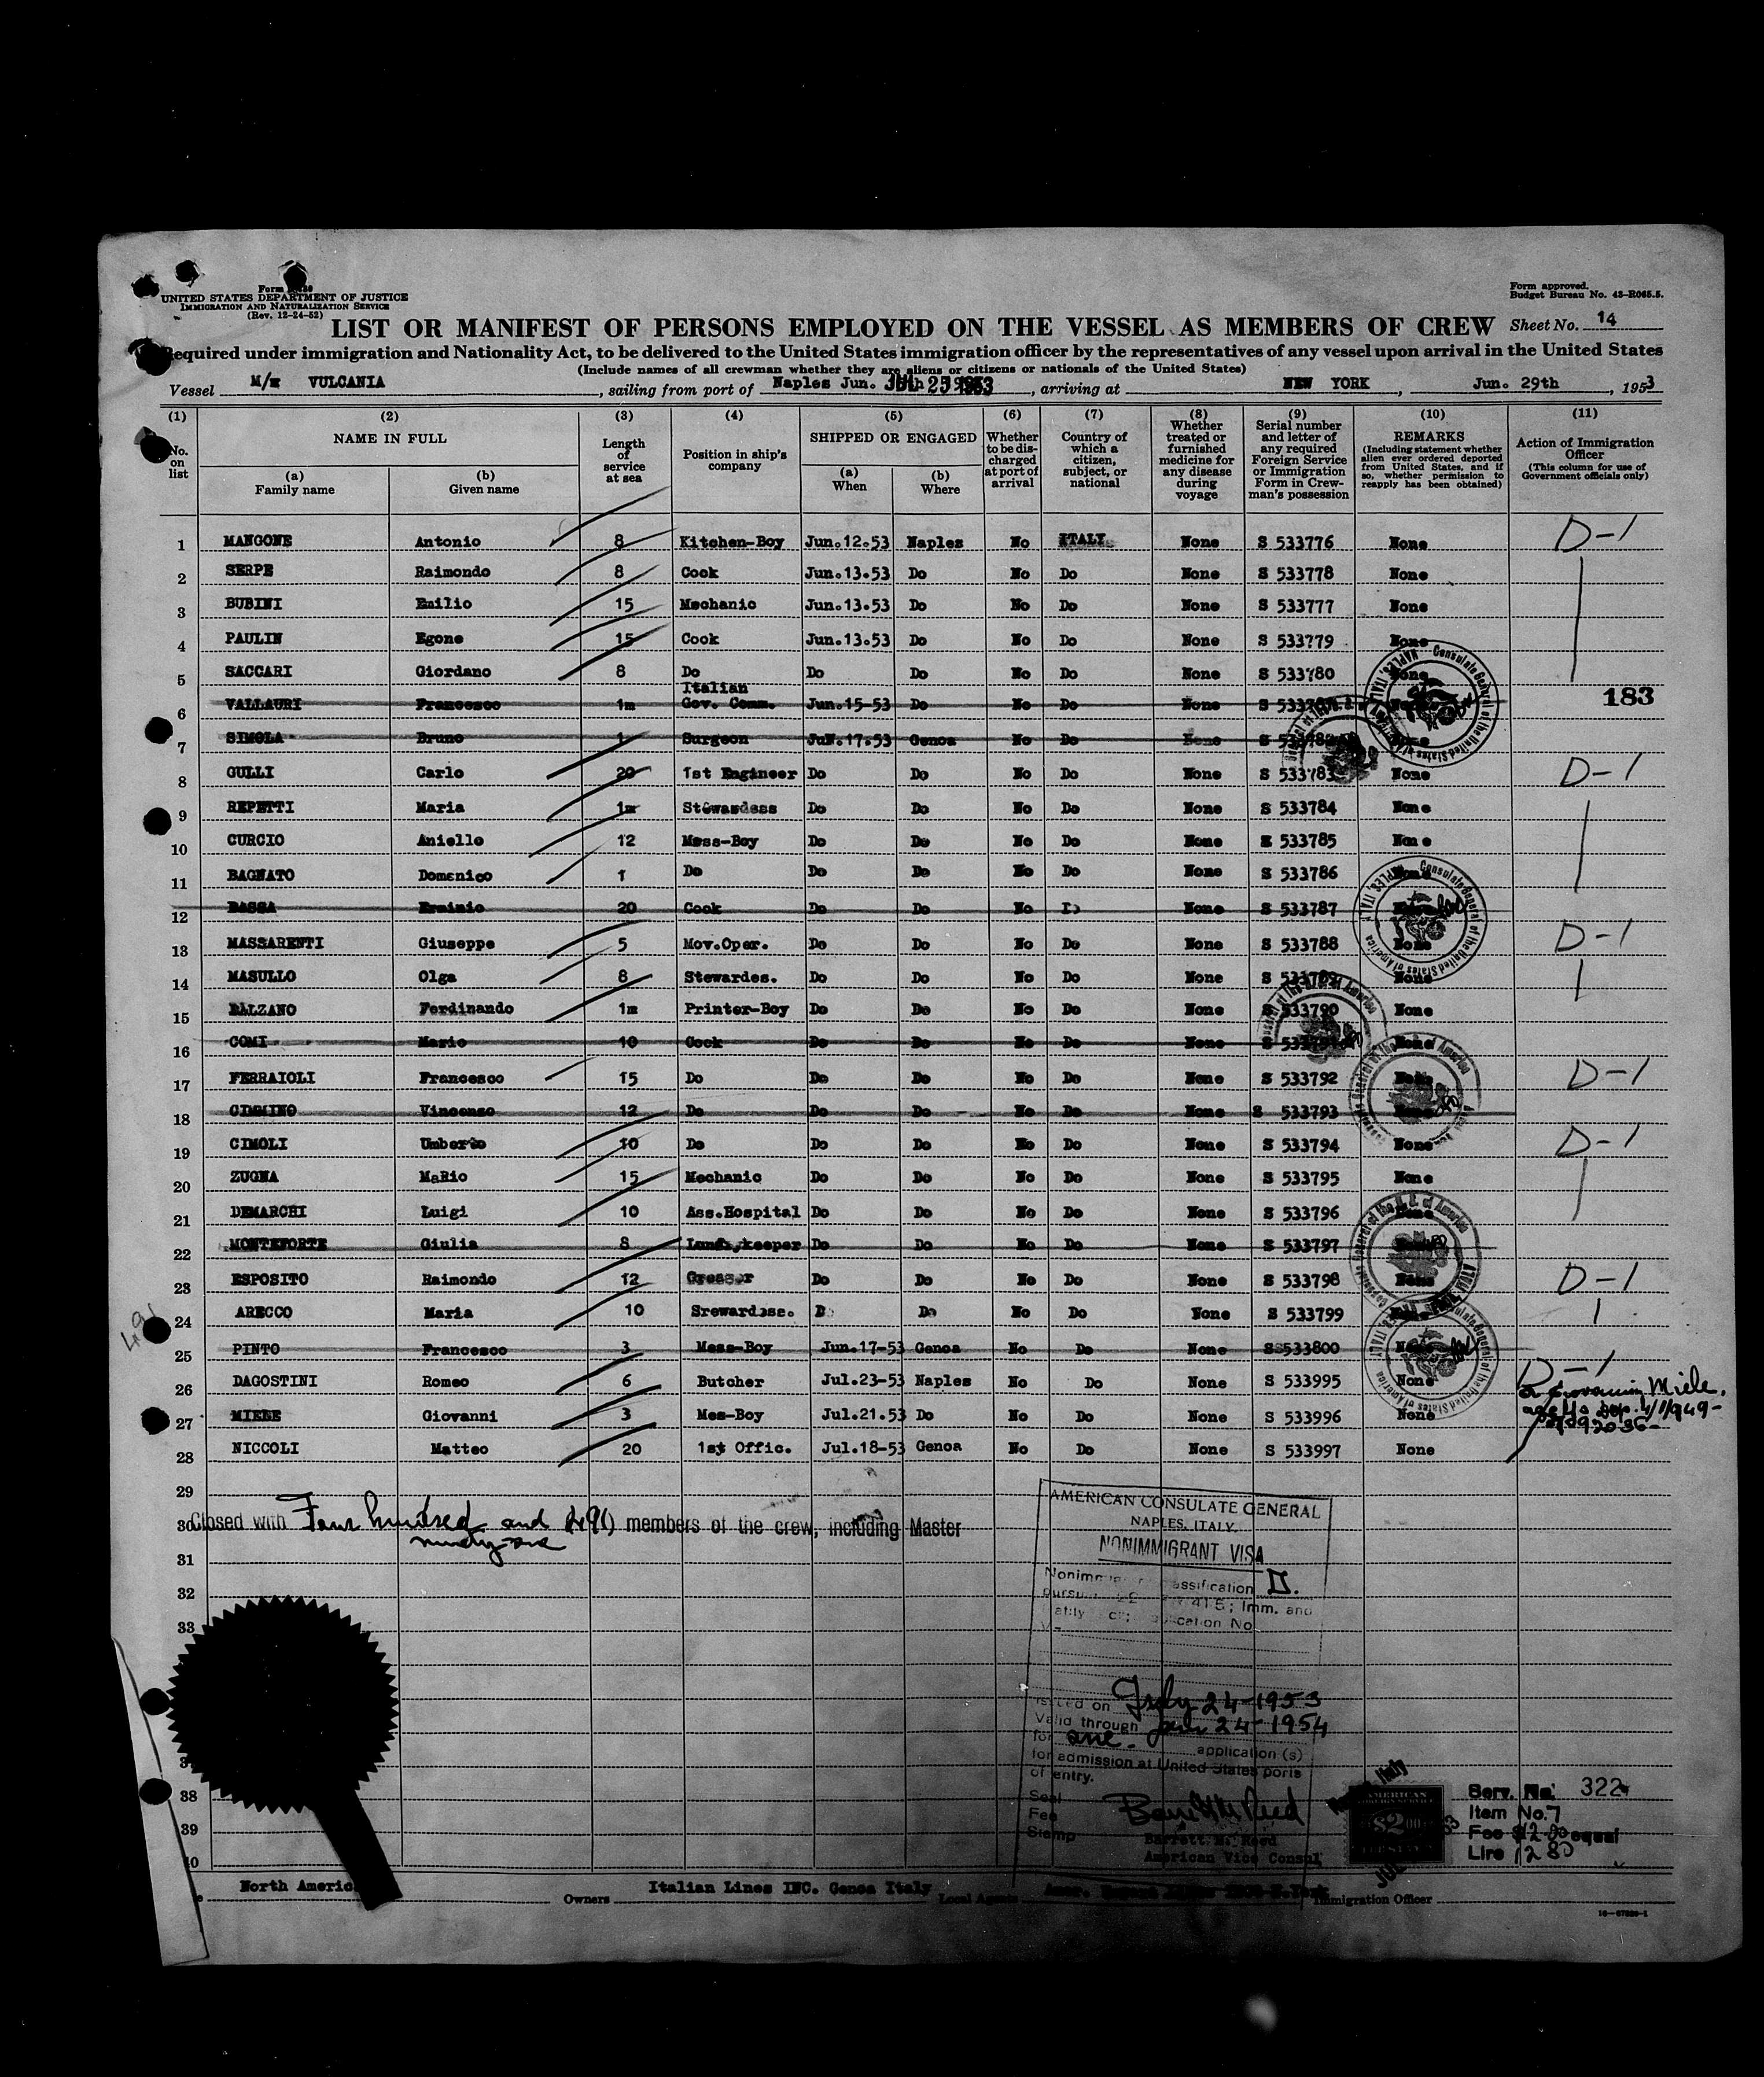 Form
UNITED STATES DEPARTMENT OF JUSTICE
IMMIGRATION AND NATURALIZATION SERVICE
(Rev. 12-24-52)
Form approved.
Budget Bureau No. 43-R065.5.
LIST OR MANIFEST OF PERSONS EMPLOYED ON THE VESSEL AS MEMBERS OF CREW Sheet No. 14
Required under immigration and Nationality Act, to be delivered to the United States immigration officer by the representatives of any vessel upon arrival in the United States
(Include names of all crewman whether they are aliens or citizens or nationals of the United States)
Vessel VULCANIA, sailing from port of Naples Jun. 1953, arriving at NEW YORK, Jun. 29th, 1953
(1) (2) (3) (4) (5) (6) (7) (8) (9) (10) (11)
No. on list
NAME IN FULL
(a) Family name
(b) Given name
Length of service at sea
Position in ship's company
SHIPPED OR ENGAGED
(a) When
(b) Where
Whether to be discharged at port of arrival
Country of which a citizen, subject, or national
Whether treated or furnished medicine for any disease during voyage
Serial number and letter of any required Foreign Service or Immigration Form in Crewman's possession
REMARKS
(Including statement whether alien ever ordered deported from United States, and if so, whether permission to reapply has been obtained)
Action of Immigration Officer
(This column for use of Government officials only)
1 MANGONE Antonio 8 Kitchen-Boy Jun.12.53 Naples No ITALY None S 533776 None D-1
2 SERPE Raimondo 8 Cook Jun.13.53 Do No Do None S 533778 None
3 BUBINI Emilio 15 Mechanic Jun.13.53 Do No Do None S 533777 None
4 PAULIN Egone 15 Cook Jun.13.53 Do No Do None S 533779 None
5 SACCARI Giordano 8 Do Do Do No Do None S 533780 None
6 VALLAURI Francesco 1m Italian Gov. Comm. Jun.15-53 Do No Do None 183
7 SIMOLA Bruno 1 Surgeon JuN.17.53 Genoa No Do None
8 GULLI Carlo 20 1st Engineer Do Do No Do None S 533783 None D-1
9 REPETTI Maria 1m Stewardess Do Do No Do None S 533784 None
10 CURCIO Aniello 12 Mess-Boy Do Do No Do None 533785 None
11 BAGNATO Domenico 1 Do Do Do No Do None S 533786 None
12 BASSA Erminio 20 Cook Do Do No None S 533787
13 MASSARENTI Giuseppe 5 Mov.Oper. Do Do No Do None S 533788 None D-1
14 MASULLO Olga 8 Stewardes. Do Do No Do None S 533789 None
15 BALZANO Ferdinando 1m Printer-Boy Do Do No Do None S 533790 None
16 COMI Mario 10 Cook Do Do No Do None S 533791 None
17 FERRAIOLI Francesco 15 Do Do Do No Do None S 533792 None D-1
18 CIMMINO Vincenzo 12 Do Do Do No Do None S 533793 None
19 CIMOLI Umberto 10 Do Do Do No Do None S 533794 None D-1
20 ZUGNA MaRio 15 Mechanic Do Do No Do None S 533795 None
21 DEMARCHI Luigi 10 Ass.Hospital Do Do No Do None S 533796 None
22 MONTEFORTE Giulia 8 Do Do No Do None S 533797
23 ESPOSITO Raimondo 12 Greaser Do Do No Do None S 533798 None D-1
24 ARECCO Maria 10 Srewardese. Do No Do None S 533799
25 PINTO Francesco 3 Mess-Boy Jun.17-53 Genoa No Do None SS533800 None
26 DAGOSTINI Romeo 6 Butcher Jul.23-53 Naples No Do None S 533995 None D-1
27 MIELE Giovanni 3 Mes-Boy Jul.21.53 Do No Do None S 533996 None Giovanni Miele.
28 NICCOLI Matteo 20 1st Offic. Jul.18-53 Genoa No Do None S 533997 None
29
30 Closed with Four hundred and ninety-one (491) members of the crew, including Master
31
32
33
38
39
491
AMERICAN CONSULATE GENERAL
NAPLES, ITALY
NONIMMIGRANT VISA
classification D.
Imm. and
No
Issued on July 24-1953
Valid through Jan 24-1954
for one. application (s)
for admission at United States ports
of entry.
Seal
Fee
Stamp
Barrett M. Reed
American Vice Consul
AMERICAN
$2.00
Serv. No. 322
Item No. 7
Fee $2.00 equal
Lire 1280
North America
Owners Italian Lines INC. Genoa Italy Local Agents
Immigration Officer